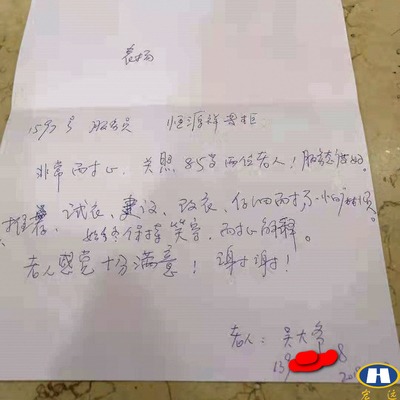 表扬
1593号 服务员 恒源祥专柜
非常耐心、关照85岁两位老人！服务态度好。
推荐、试衣、建议、改衣、仔细耐
始终保持笑容、耐心解释。
老人感觉十分满意！谢谢！
老人：吴大
139 8
201
H
宏运